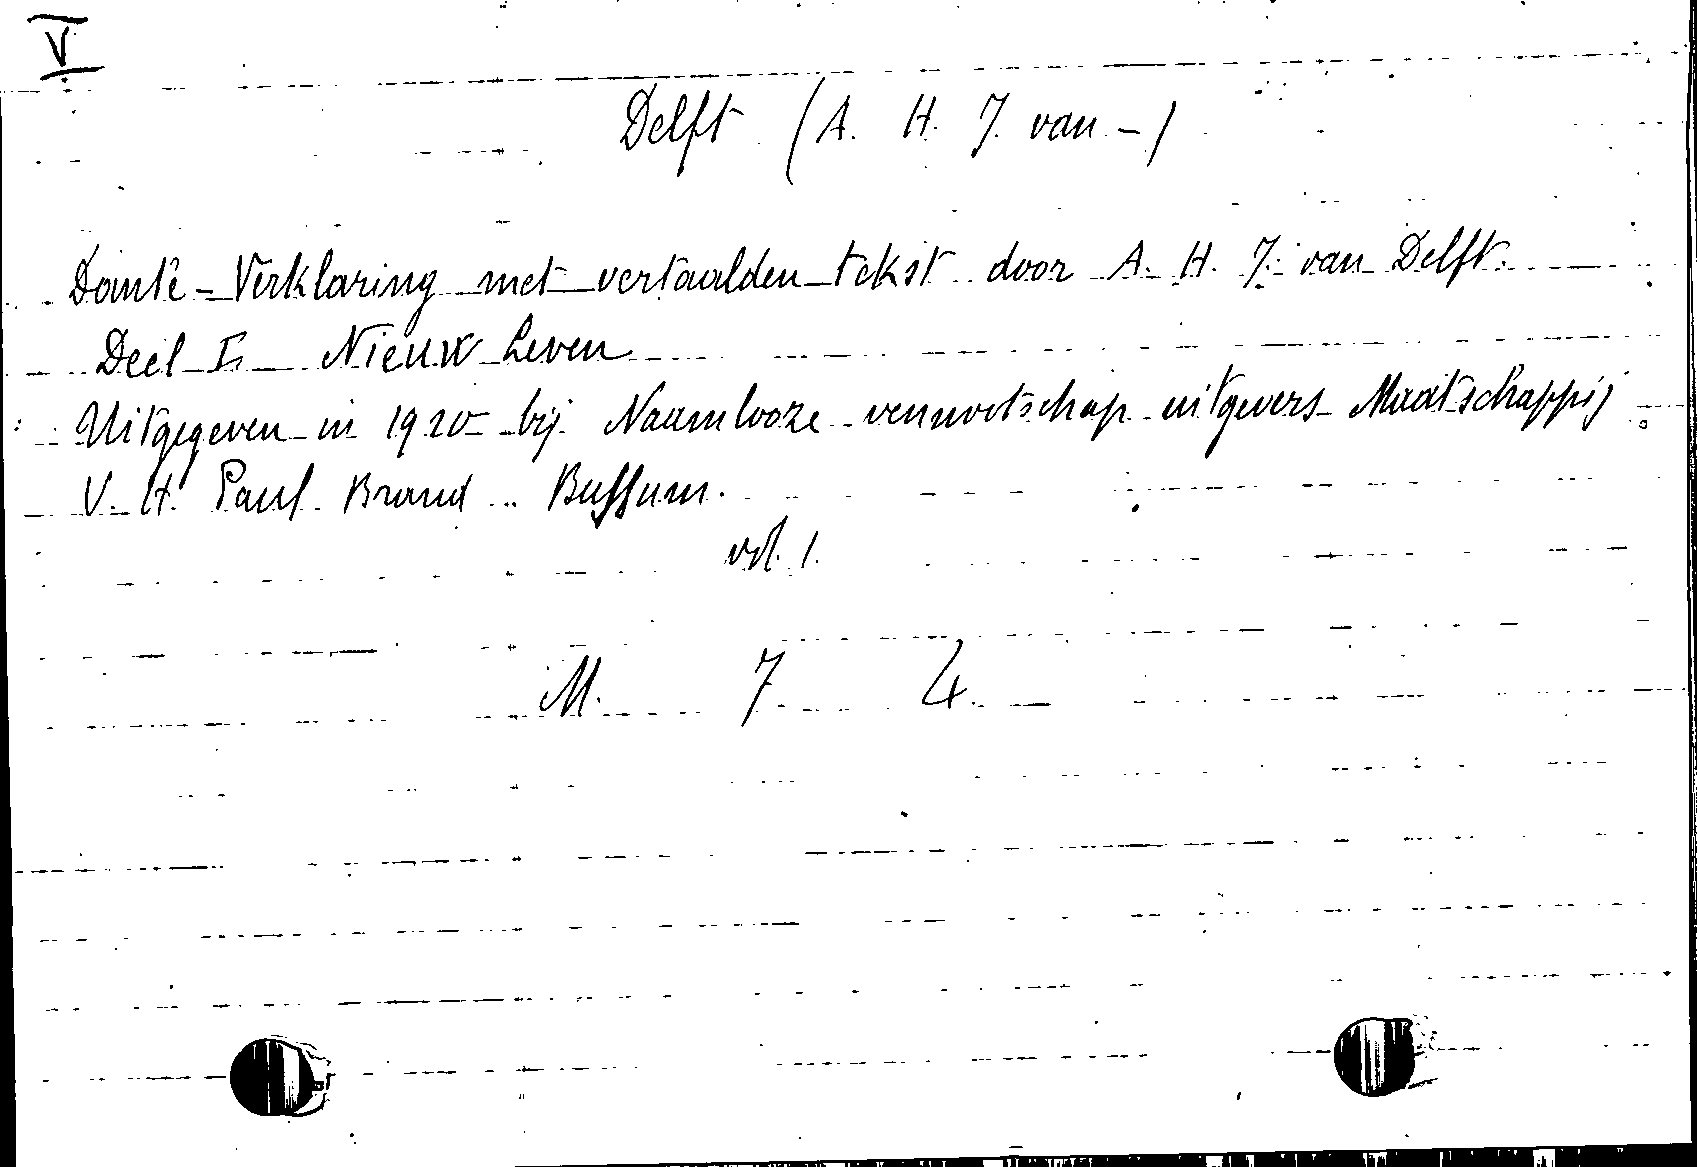 V
Delft (A. H. J. van -)
Dante - Verklaring met vertaalden tekst door A. H. J. van Delft.
Deel I. Nieuw Leven
Uitgegeven in 1920 bij Naamlooze vennootschap uitgevers Maatschappij
V. H. Paul Brand Bussum.
vol. 1.
M. 7 4.